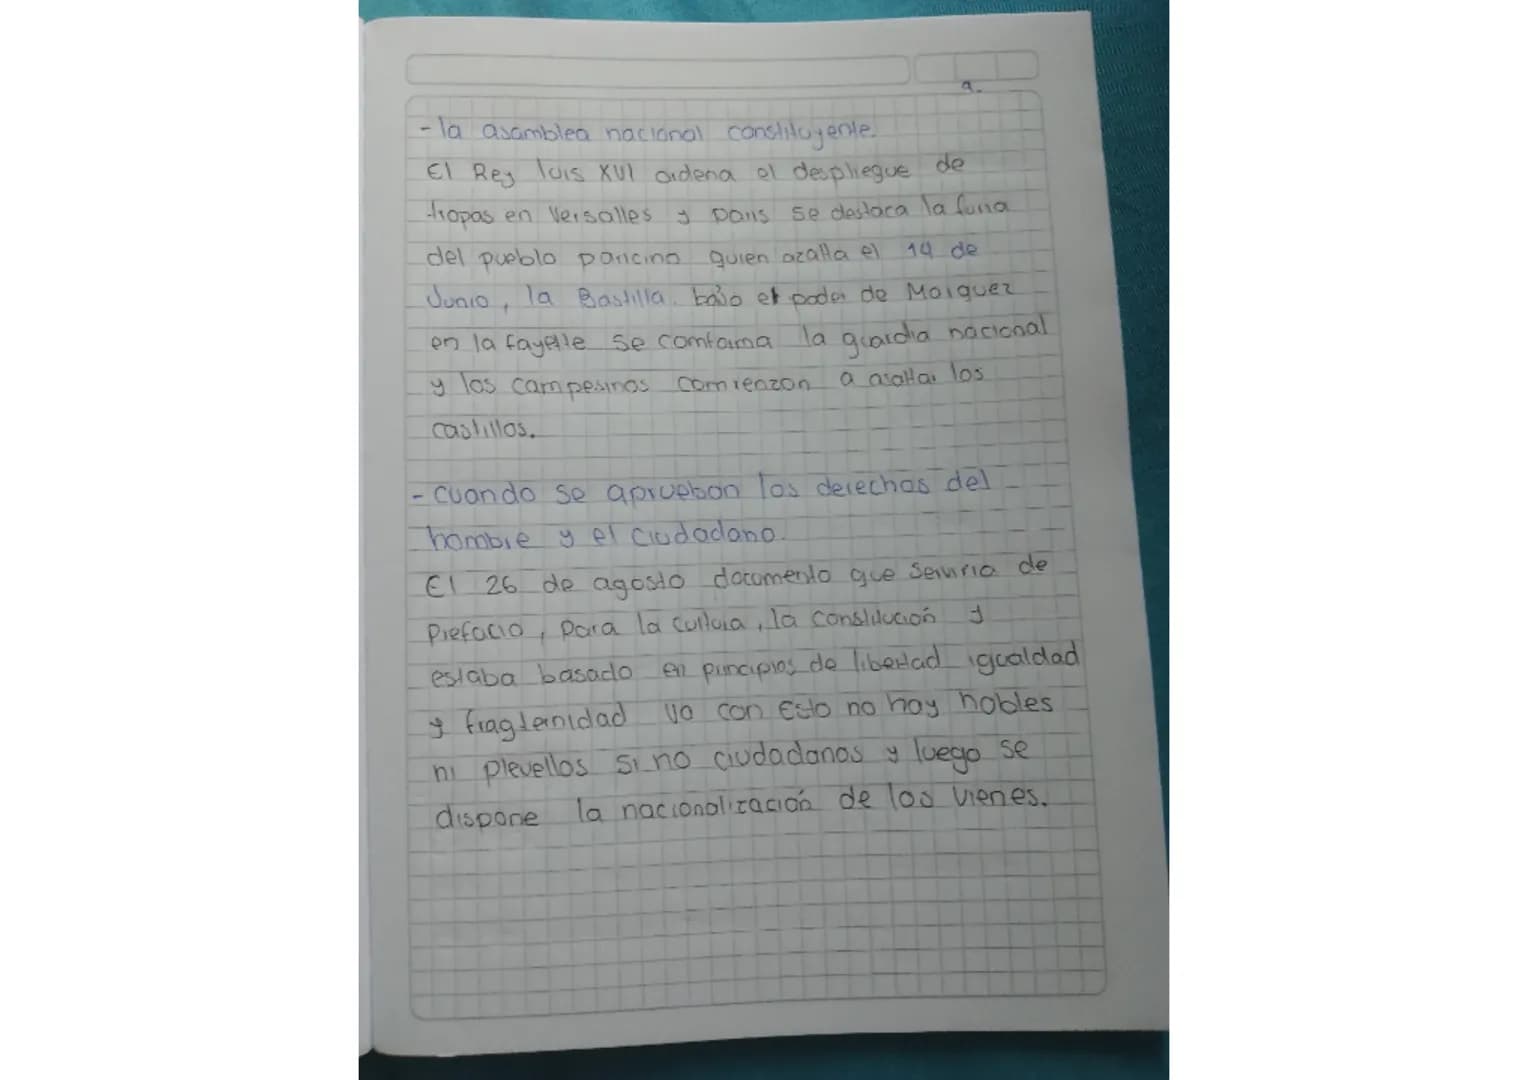 a.
- la asamblea nacional constituyente.
El Rey luis XVI ordena el despliegue de
tropas en Versalles y paris se destaca la furia
del pueblo paricino quien azalta el 14 de
Junio, la Bastilla. bajo el poder de Marquez
en la fayette se comforma la guardia nacional
y los campesinos comienzan a asaltar los
castillos.
- cuando se aprueban los derechos del
hombre y el ciudadano.
El 26 de agosto documento que serviria de
Prefacio, para la cultura, la constitución y
estaba basado en principios de libertad igualdad
y fragternidad ya con Esto no hay nobles
ni plevellos si no ciudadanos y luego se
dispone la nacionalización de los vienes.